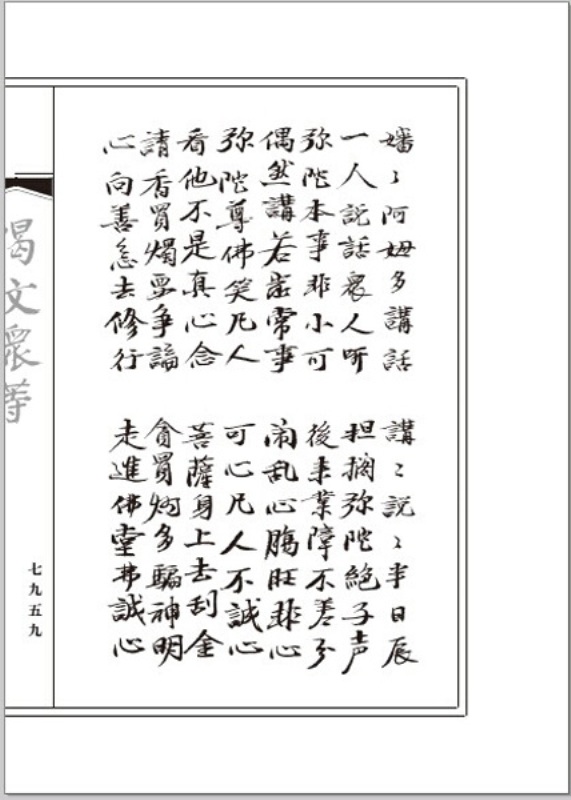 嬸〻阿姆多講話 講〻説〻半日辰
一人説話衆人听 担擱弥陀絶子声
弥陀本事非小可 後来業障不善分
偶然講若当常事 闹乱心腸旺非心
弥陀尊佛笑凡人 可心凡人不誠心
看他不是真心念 菩薩身上去刮金
請香買燭要争論 貪買焫多騙神明
心向善念去修行 走進佛堂弗誠心
偈文衆等
七九五九